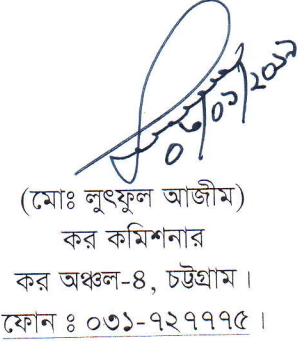 (মোঃ লুৎফুল আজীম)
কর কমিশনার
কর অঞ্চল-৪, চট্টগ্রাম।
ফোন ঃ ০৩১-৭২৭৭৭৫।